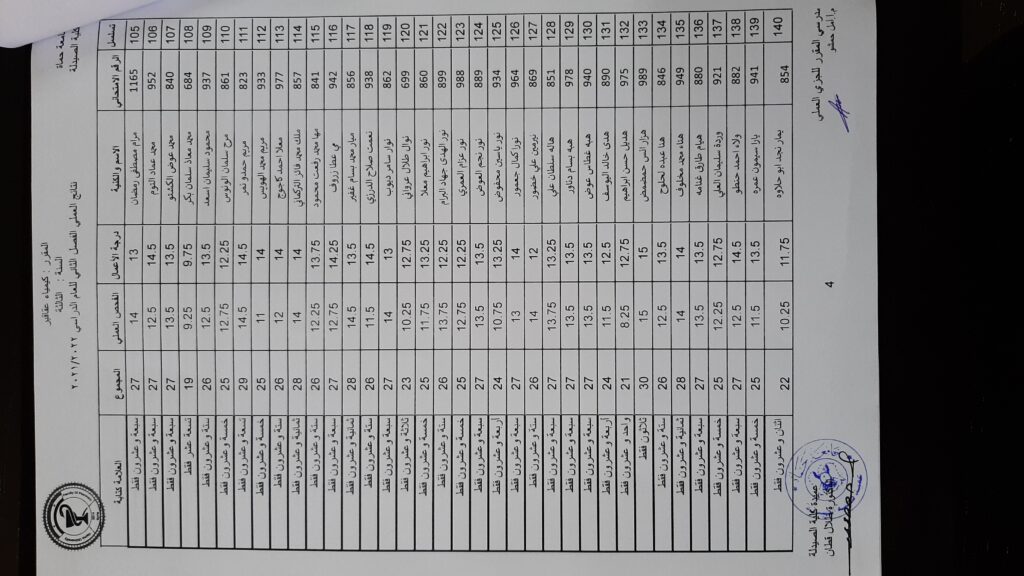 جامعة حماة
كلية الصيدلة
المقرر : كيمياء عقاقير
السنة : الثالثة
نتائج العملي الفصل الثاني للعام الدراسي ٢٠٢١/٢٠٢٢
تسلسل الرقم الامتحاني الاسم والكنية درجة الأعمال الفحص العملي المجموع العلامة كتابة
105 1165 مرام مصطفى رمضان 13 14 27 سبعة و عشرون فقط
106 952 محمد عماد التوم 14.5 12.5 27 سبعة و عشرون فقط
107 840 محمد عوض الكدلمو 13.5 13.5 27 سبعة و عشرون فقط
108 684 محمد معاذ سلمان بكر 9.75 9.25 19 تسعة عشر فقط
109 937 محمود سليمان اسعد 13.5 12.5 26 ستة و عشرون فقط
110 861 مرح سلمان الونوس 12.25 12.75 25 خمسة و عشرون فقط
111 823 مريم حمدو نمر 14.5 14.5 29 تسعة و عشرون فقط
112 933 مريم محمد الهورس 14 11 25 خمسة و عشرون فقط
113 977 معلا احمد كاجوج 14 12 26 ستة و عشرون فقط
114 857 ملك محمد فائز التركماني 14 14 28 ثمانية و عشرون فقط
115 841 مها محمد رفعت محمود 13.75 12.25 26 ستة و عشرون فقط
116 942 مي عطا زروف 14.25 12.75 27 سبعة و عشرون فقط
117 856 ميار محمد بسام غفير 13.5 14.5 28 ثمانية و عشرون فقط
118 938 نعمت صلاح الدرزي 14.5 11.5 26 ستة و عشرون فقط
119 862 نوار سامر ديوب 13 14 27 سبعة و عشرون فقط
120 699 نوال طلال عرواني 12.75 10.25 23 ثلاثة و عشرون فقط
121 860 نور ابراهيم معلا 13.25 11.75 25 خمسة و عشرون فقط
122 899 نور الهدى جهاد البرام 12.25 13.75 26 ستة و عشرون فقط
123 988 نور عزام العمري 12.25 12.75 25 خمسة و عشرون فقط
124 889 نور نجم العوض 13.5 13.5 27 سبعة و عشرون فقط
125 934 نور ياسين محفوض 13.25 10.75 24 أربعة و عشرون فقط
126 964 نورا كمال جعمور 14 13 27 سبعة و عشرون فقط
127 869 نيرمين علي خضور 12 14 26 ستة و عشرون فقط
128 851 هاله سلطان علي 13.25 13.75 27 سبعة و عشرون فقط
129 978 هبه بسام دناور 13.5 13.5 27 سبعة و عشرون فقط
130 940 هبه غطاس عوض 13.5 13.5 27 سبعة و عشرون فقط
131 890 هدى خالد اليوسف 12.5 11.5 24 أربعة و عشرون فقط
132 975 هديل حسن ابراهيم 12.75 8.25 21 واحد و عشرون فقط
133 989 هزار انس حمضمض 15 15 30 ثلاثون فقط
134 846 هنا عبيده لحلوح 13.5 12.5 26 ستة و عشرون فقط
135 949 هناء محمد مخلوف 14 14 28 ثمانية و عشرون فقط
136 880 هيام طارق غنامه 13.5 13.5 27 سبعة و عشرون فقط
137 921 وردة سليمان العلي 12.75 12.25 25 خمسة و عشرون فقط
138 882 ولاء احمد حنطو 14.5 12.5 27 سبعة و عشرون فقط
139 941 يارا سيمون عمره 13.5 11.5 25 خمسة و عشرون فقط
140 854 يمار نجد ابو حلاوه 11.75 10.25 22 اثنان و عشرون فقط
مدرسي المقرر للجزء العملي
م.أ.أمل حمشو
4
عميدة كلية الصيدلة
الدكتورة طلال قطان